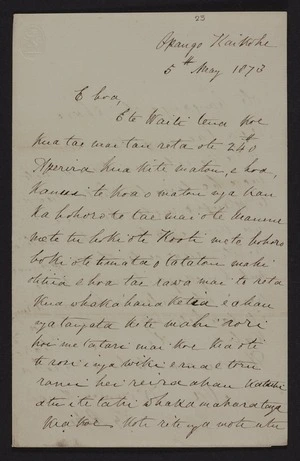 23
Opango Kaikohe
5th May 1873
E hoa,
E te Waiti tena koe
kua tae mai tau reta o te 24 o
Aperira kua kite matou, e hoa,
kanui te koa o matou nga hau
ka hohoro te tae mai o te
mete tu hoki o te Kooti me to hohoro
hoki o te timata o tatatou mahi
e hoa tae rawa mai to reta
kua whakahaua ketia e ahau
nga tangata ki te mahi rori
hoi me tatari mai koe kia oti
te rori i nga wiki e rua e toru
ranei hei reira ahau
atu i te tahi whakamaharatanga
kia koe